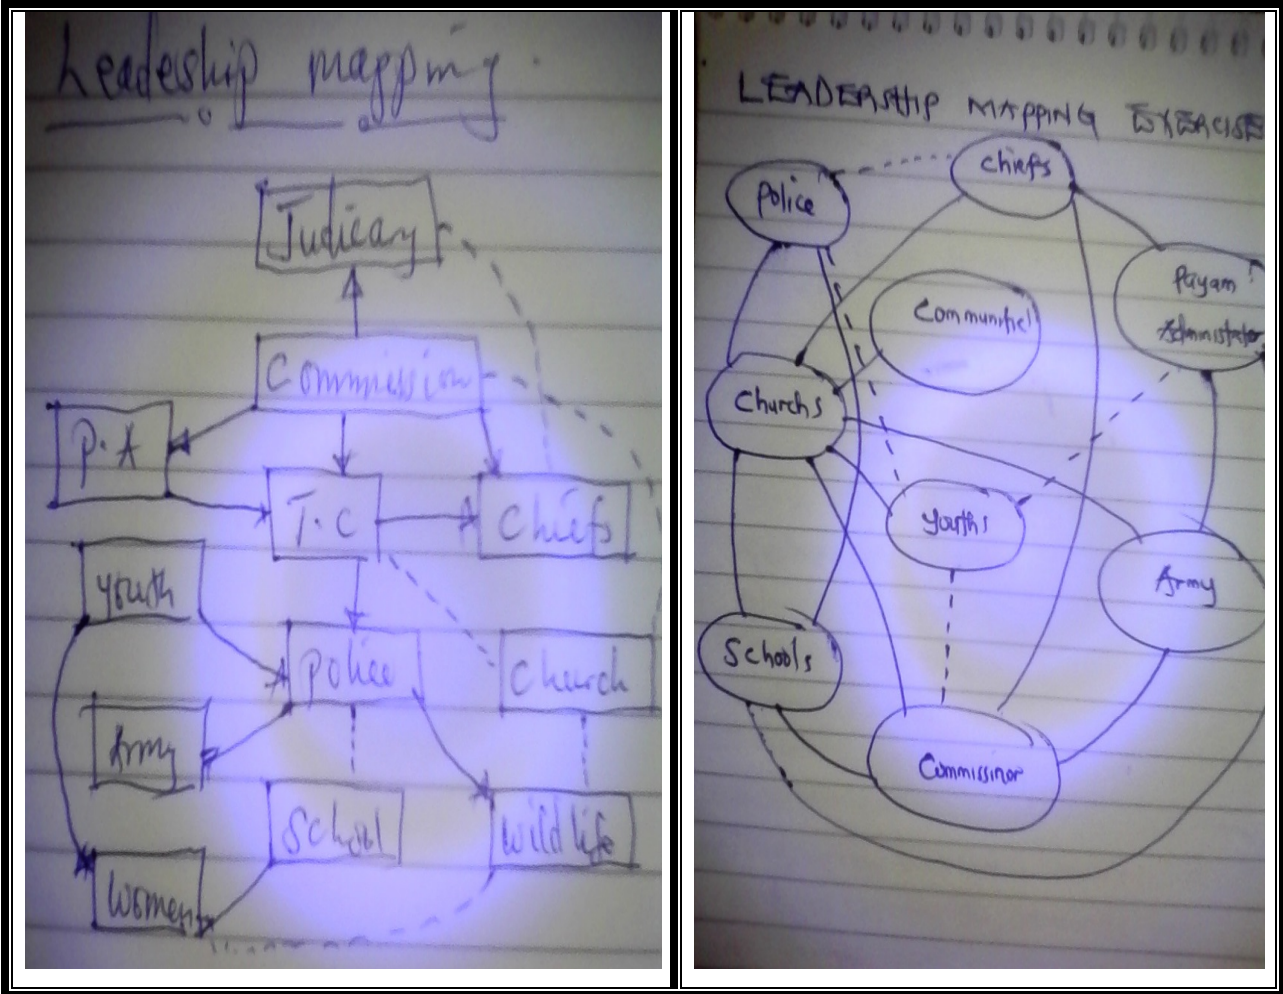 Leadeship mapping.
Judicary
Commission
P.A
T.C
Chiefs
youth
Police
Church
Army
School
Wild life
Women
LEADERSHIP MAPPING EXERCISE
chiefs
Police
Payam
Administrator
Communitie
Churchs
Youths
Army
Schools
Commissinor